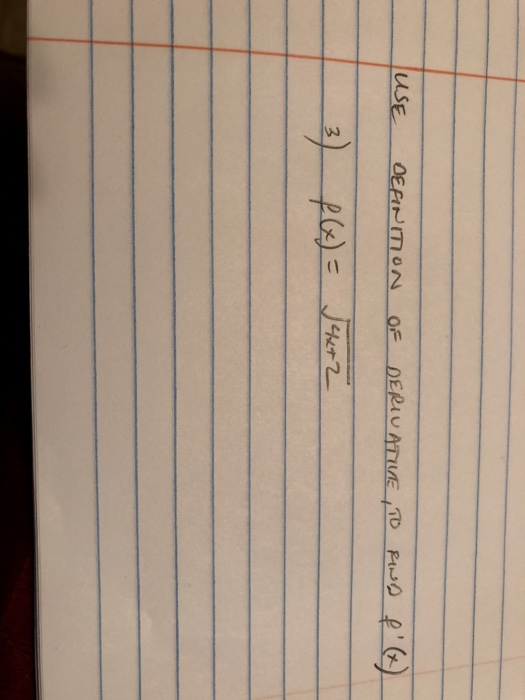 USE DEFINITION OF DERIVATIVE, TO FIND f'(x)
3) f(x) = √4x+2